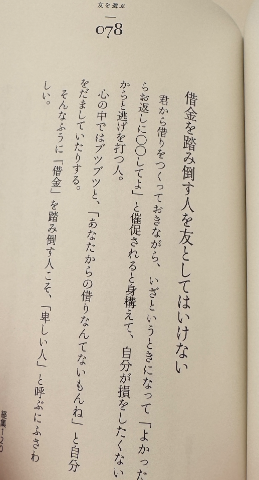 友を選ぶ
078
借金を踏み倒す人を友としてはいけない
君から借りをつくっておきながら、いざというときになって「よかった
らお返しに〇〇してよ」と催促されると身構えて、自分が損をしたくない
からと逃げを打つ人。
心の中ではブツブツと、「あなたからの借りなんてないもんね」と自分
をだましていたりする。
そんなふうに「借金」を踏み倒す人こそ、「卑しい人」と呼ぶにふさわ
しい。
経集120